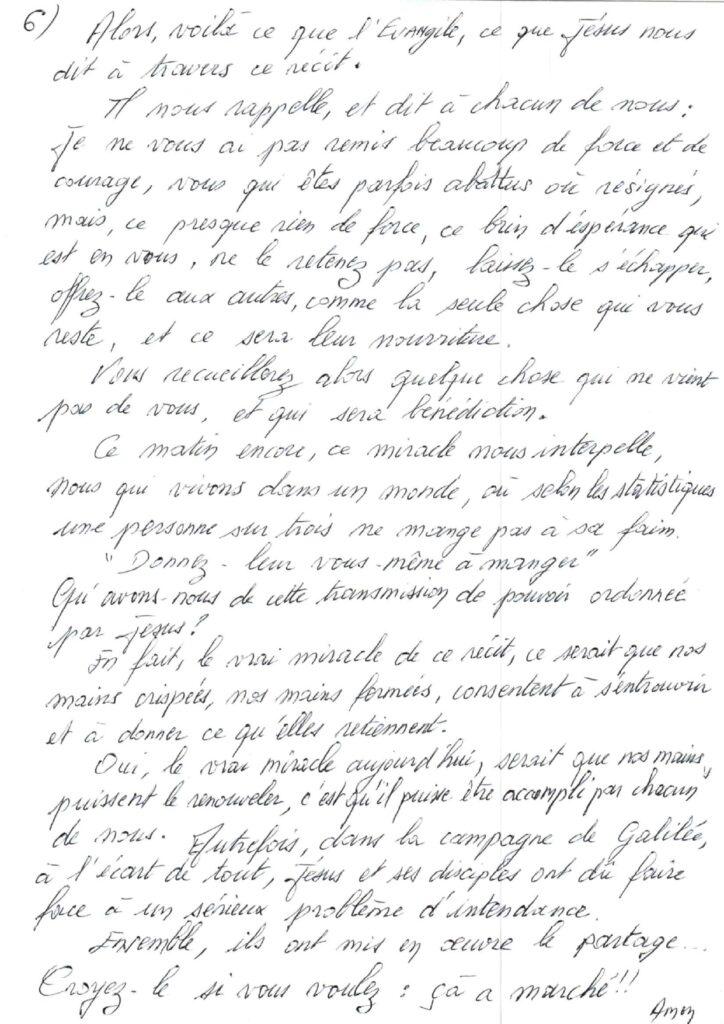 6) Alors, voilà ce que l'Evangile, ce que Jésus nous
dit à travers ce récit.
Il nous rappelle, et dit à chacun de nous :
Je ne vous ai pas remis beaucoup de force et de
courage, vous qui êtes parfois abattus où résignés,
mais, ce presque rien de force, ce brin d'éspérance qui
est en vous, ne le retenez pas, laissez-le s'échapper,
offrez-le aux autres, comme la seule chose qui vous
reste, et ce sera leur nourriture.
Vous recueillerez alors quelque chose qui ne vient
pas de vous, et qui sera bénédiction.
Ce matin encore, ce miracle nous interpelle,
nous qui vivons dans un monde, où selon les statistiques
une personne sur trois ne mange pas à sa faim.
"Donnez-leur vous-même à manger"
Qu'avons-nous de cette transmission de pouvoir ordonnée
par Jésus?
En fait, le vrai miracle de ce récit, ce serait que nos
mains crispées, nos mains fermées, consentent à s'entrouvrir
et à donner ce qu'elles retiennent.
Oui, le vrai miracle aujourd'hui, serait que nos mains,
puissent le renouveler, c'est qu'il puisse être accompli par chacun
de nous. Autrefois, dans la campagne de Galilée,
à l'écart de tout, Jésus et ses disciples ont dû faire
face à un sérieux problème d'intendance.
Ensemble, ils ont mis en œuvre le partage...
Croyez-le si vous voulez : çà a marché!!
Amen